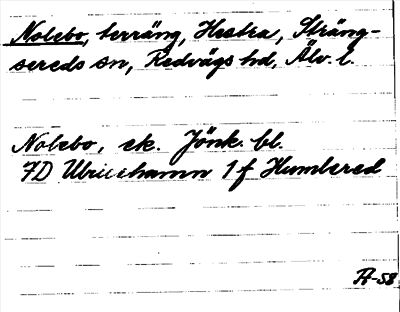 Nolebo, terräng, Hestra, Sträng-
sereds sn, Redvägs hd, Älv. l.
Nolebo, ek. Jönk. bl.
7D Ulricehamn 1 f Humlered
A-58